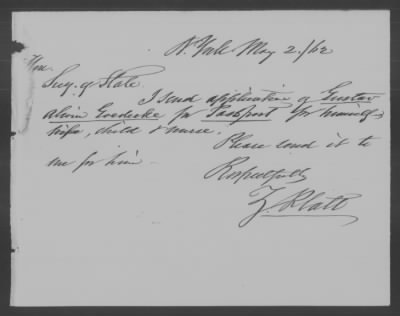 N. York May 2./62
Hon.
Secy. of State.
I send application of Gustav
Alwin Goedecke for Passport for himself,
wife, child & nurse.
Please send it to
me for him —
Respectfully
Z. Platt